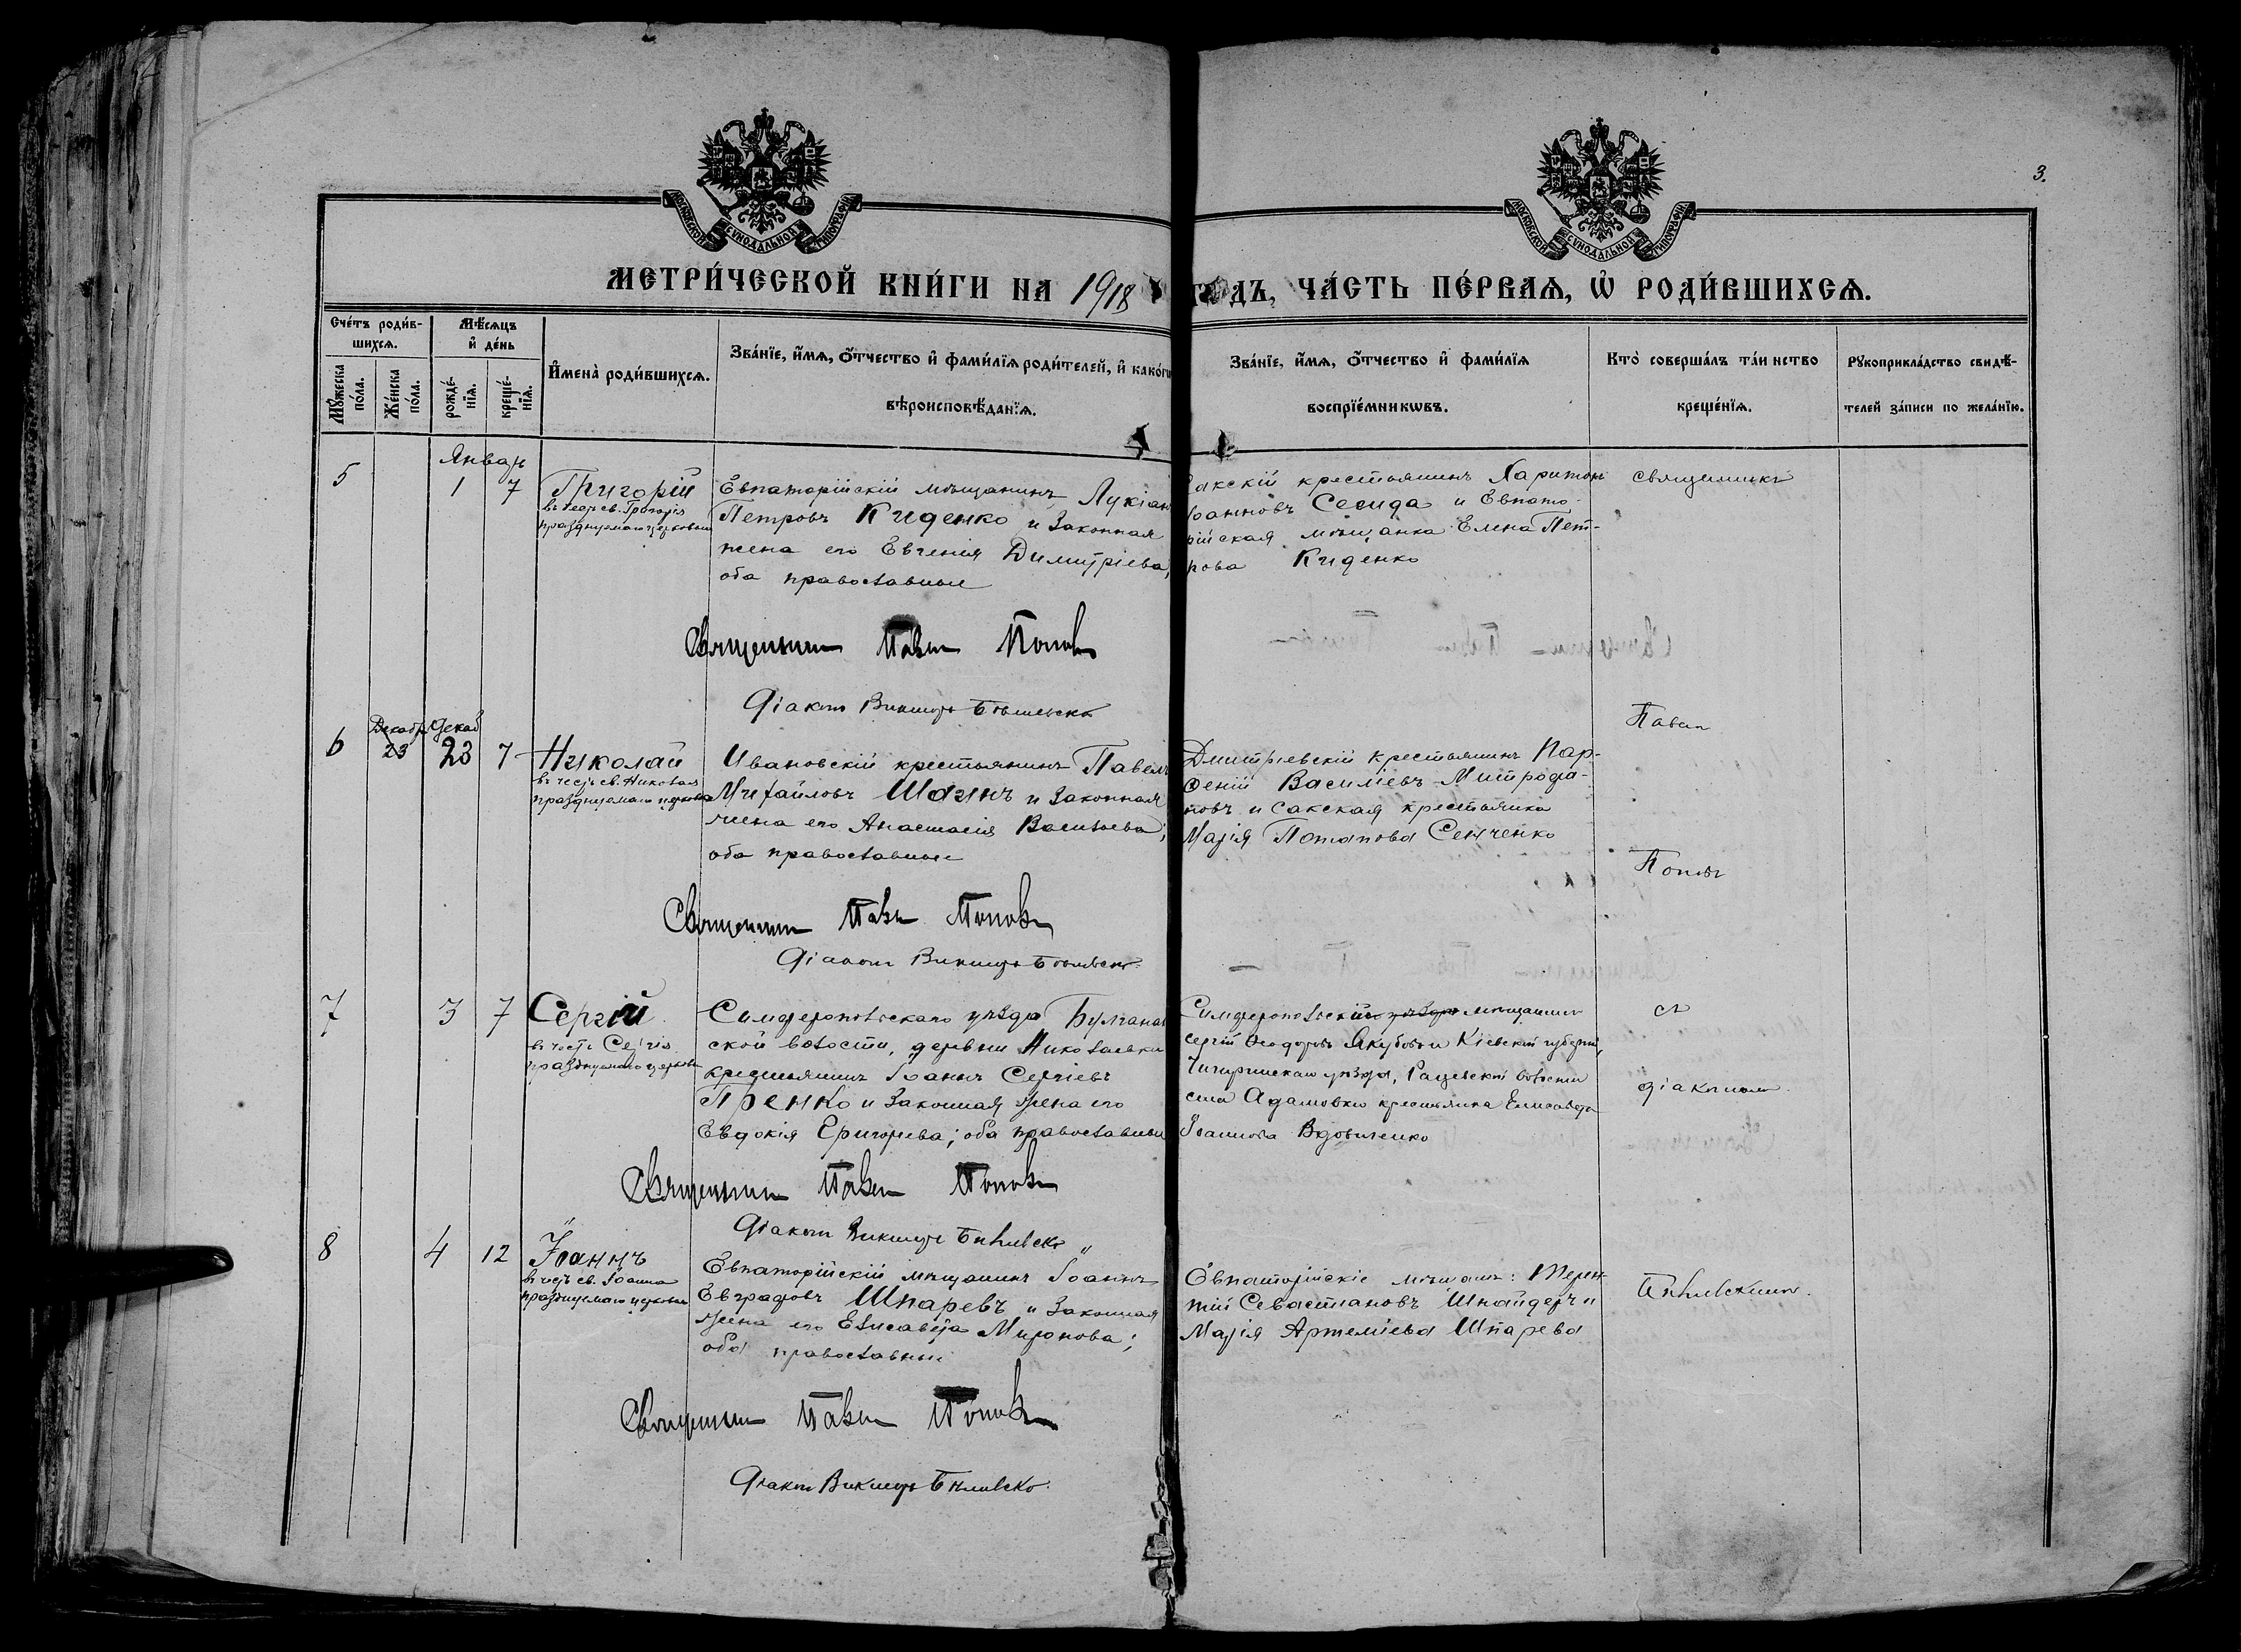 3.
МОСКОВСКОЙ СѴНОДАЛЬНОЙ ТИПОГРАФІИ
МОСКОВСКОЙ СѴНОДАЛЬНОЙ ТИПОГРАФІИ
МЕТРИ́ЧЕСКОЙ КНИ́ГИ НА 1918 ГОДЪ, ЧА́СТЬ ПЕ́РВАѦ, Ѡ҆ РОДИ́ВШИХСѦ.
Сче́тъ роди́в-
шихсѧ.
Мꙋ́жеска по́ла.
Же́нска по́ла.
Мѣ́сѧцъ
и҆ де́нь
рожде́-
нїѧ.
креще́-
нїѧ.
И҆мена̀ роди́вшихсѧ.
Зва́нїе, и҆́мѧ, ѻ҆́тчество и҆ фами́лїѧ роди́телей, и҆ како́гѡ
вѣроисповѣ́данїѧ.
Зва́нїе, и҆́мѧ, ѻ҆́тчество и҆ фами́лїѧ
воспрїе́мникѡвъ.
Кто̀ соверша́лъ та́инство
креще́нїѧ.
Рꙋкоприкла́дство свидѣ́-
телей за́писи по жела́нїю.
Январь
5 1 7
Григорій
въ честь св. Григорія
празднуемаго церковью
Евпаторійскій мѣщанинъ Лукіан
Петровъ Киденко и законная
жена его Евгенія Димитріева,
оба православные
Сакскій крестьянинъ Харитон
Іоанновъ Сесида и Евпато-
рійская мѣщанка Елена Пет-
рова Киденко
священникъ
Священникъ Павелъ Поповъ
Діаконъ Викторъ
Павелъ
Декабр Декаб
6 23 23 7
Николай
въ честь св. Николая
празднуемаго церковью
Ивановскій крестьянинъ Павелъ
Михайловъ Шагинъ и законная
жена его Анастасія Васильева;
оба православные
Дмитріевскій крестьянинъ Пар-
ѳеній Василіевъ Митрофа-
новъ и Сакская крестьянка
Марія Потапова Сенченко
Поповъ
Священникъ Павелъ Поповъ
Діаконъ Викторъ
7 3 7
Сергій
въ честь Сергія
празднуемаго церковью
Симферопольскаго уѣзда Булгана
ской волости, деревни Николаевки
крестьянинъ Іоаннъ Сергіевъ
Пренко и законная жена его
Евдокія Григорьева; оба православные
Симферопольскій мѣщанинъ
Сергій Ѳеодоровъ Якубовъ и Кіевской губерніи,
Чигиринскаго уѣзда, Рацевской волости
села Адамовки крестьянка Елисавета
Іоаннова Вдовиченко
съ
діакономъ
Священникъ Павелъ Поповъ
Діаконъ Викторъ
8 4 12
Іоаннъ
въ честь св. Іоанна
празднуемаго церковью
Евпаторійскій мѣщанинъ Іоаннъ
Евграфовъ Шпаревъ и законная
жена его Елисавета Миронова;
оба православные
Евпаторійскіе мѣщане: Терен-
тій Севастіановъ Шнайдеръ и
Марія Артеміева Шпарева
Священникъ Павелъ Поповъ
Діаконъ Викторъ